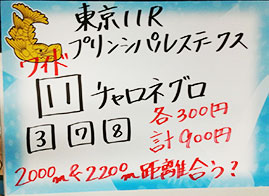 東京11R
プリンシパルステークス
ワイド
11 チャロネグロ
3 7 8
各300円
計900円
2000m&2200m距離合う?